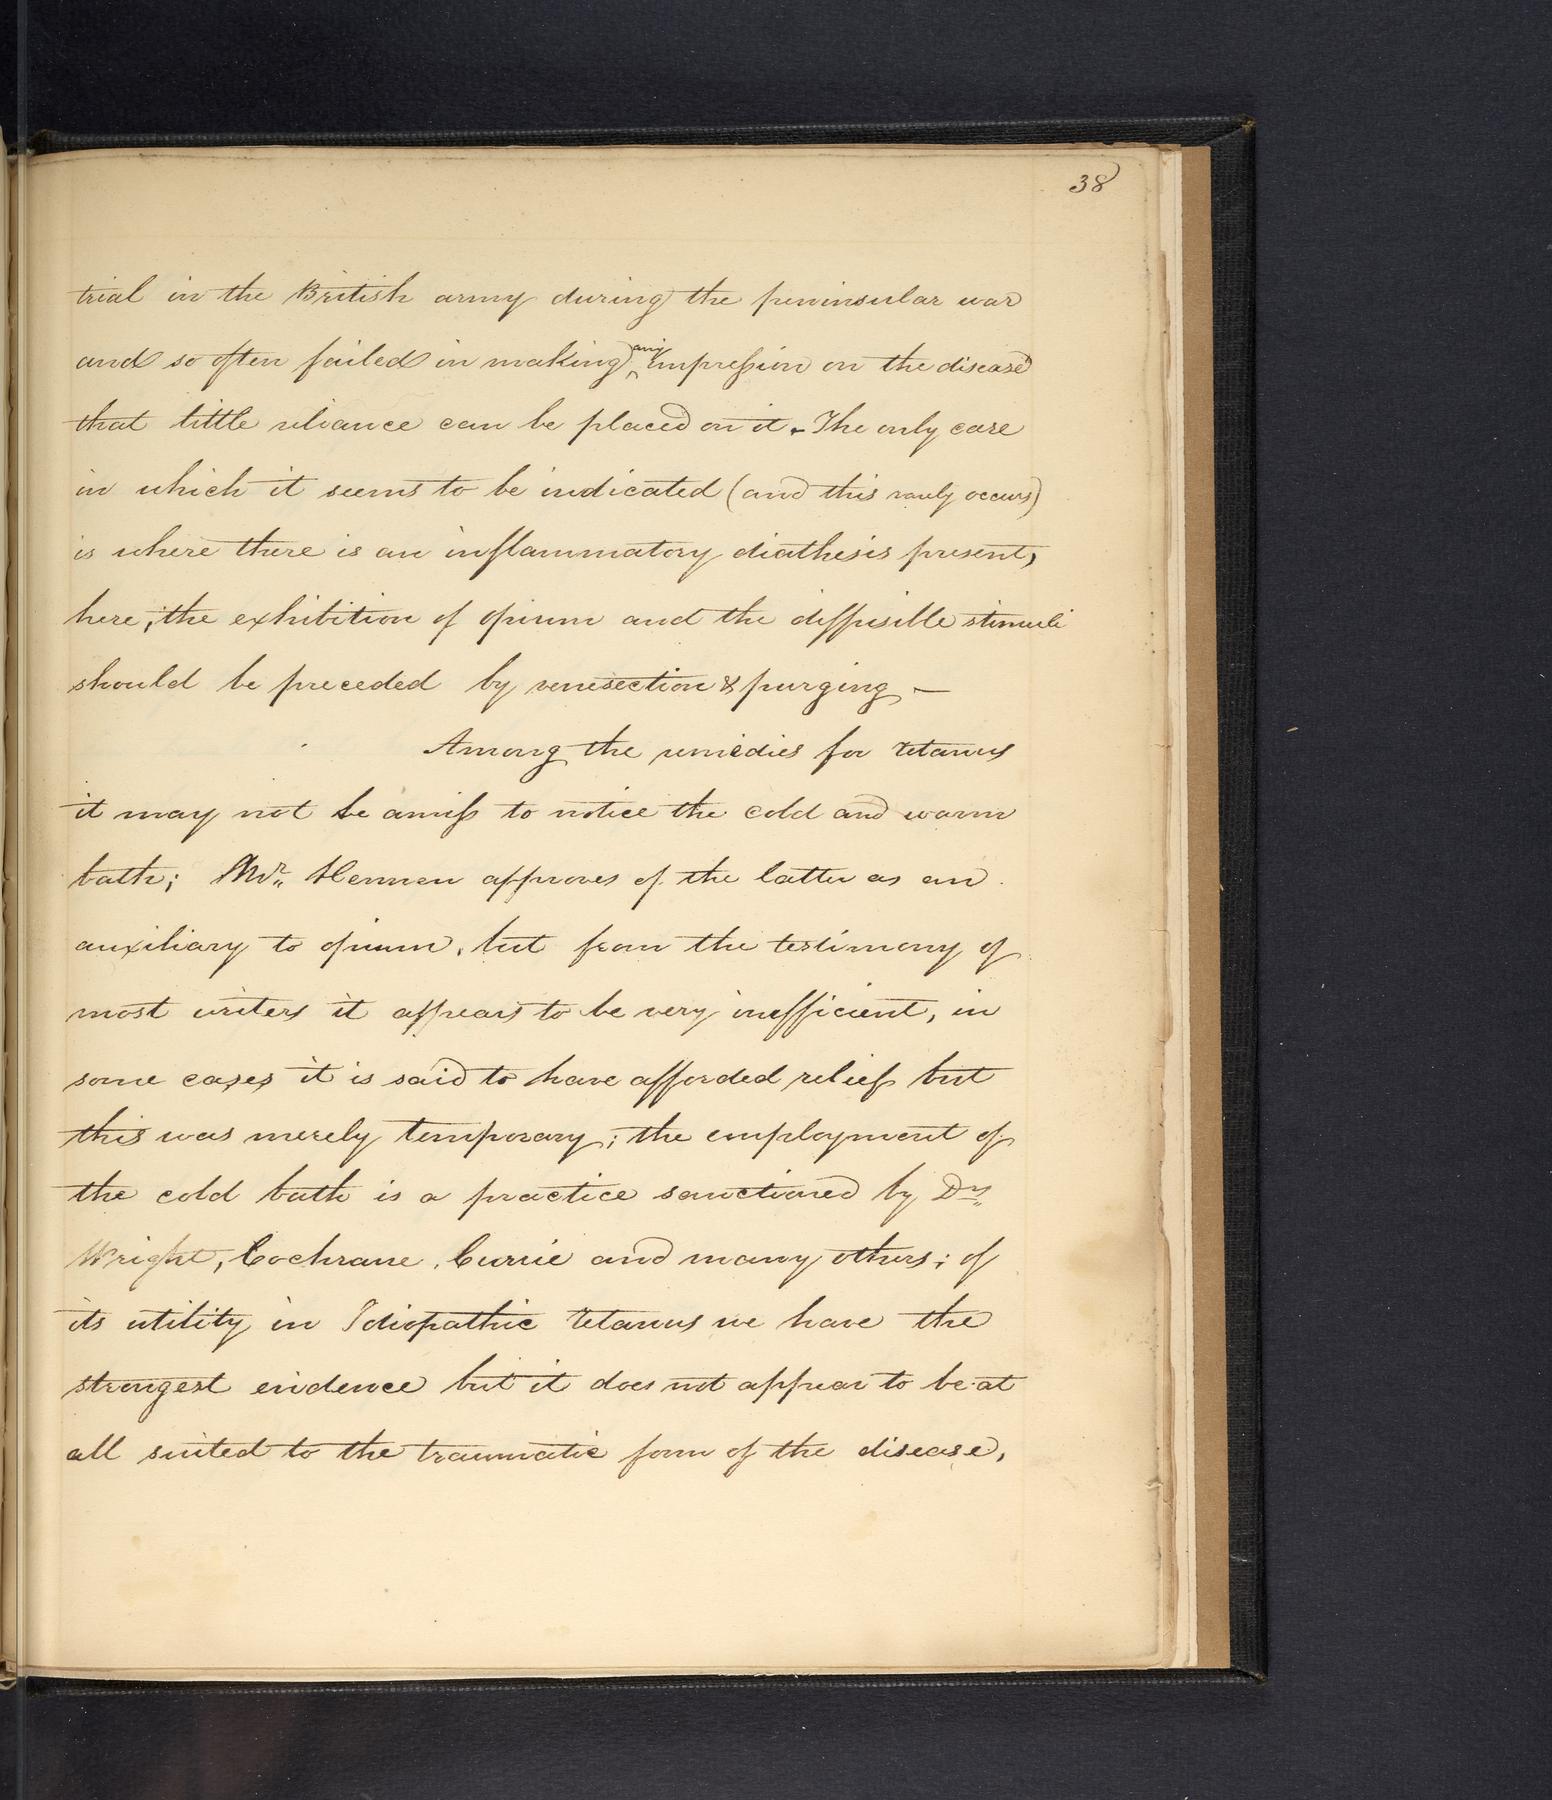 38
trial in the British army during the peninsular war
and so often failed in making any impression on the disease
that little reliance can be placed on it. The only case
in which it seems to be indicated (and this rarely occurs)
is where there is an inflammatory diathesis present,
here, the exhibition of opium and the diffusible stimuli
should be preceded by venesection & purging —
Among the remedies for tetanus
it may not be amiss to notice the cold and warm
bath; Mr. Hennen approves of the latter as an
auxiliary to opium, but from the testimony of
most writers it appears to be very inefficient, in
some cases it is said to have afforded relief but
this was merely temporary; the employment of
the cold bath is a practice sanctioned by Drs
Wright, Cochrane, Currie and many others; of
its utility in Idiopathic tetanus we have the
strongest evidence but it does not appear to be at
all suited to the traumatic form of the disease,